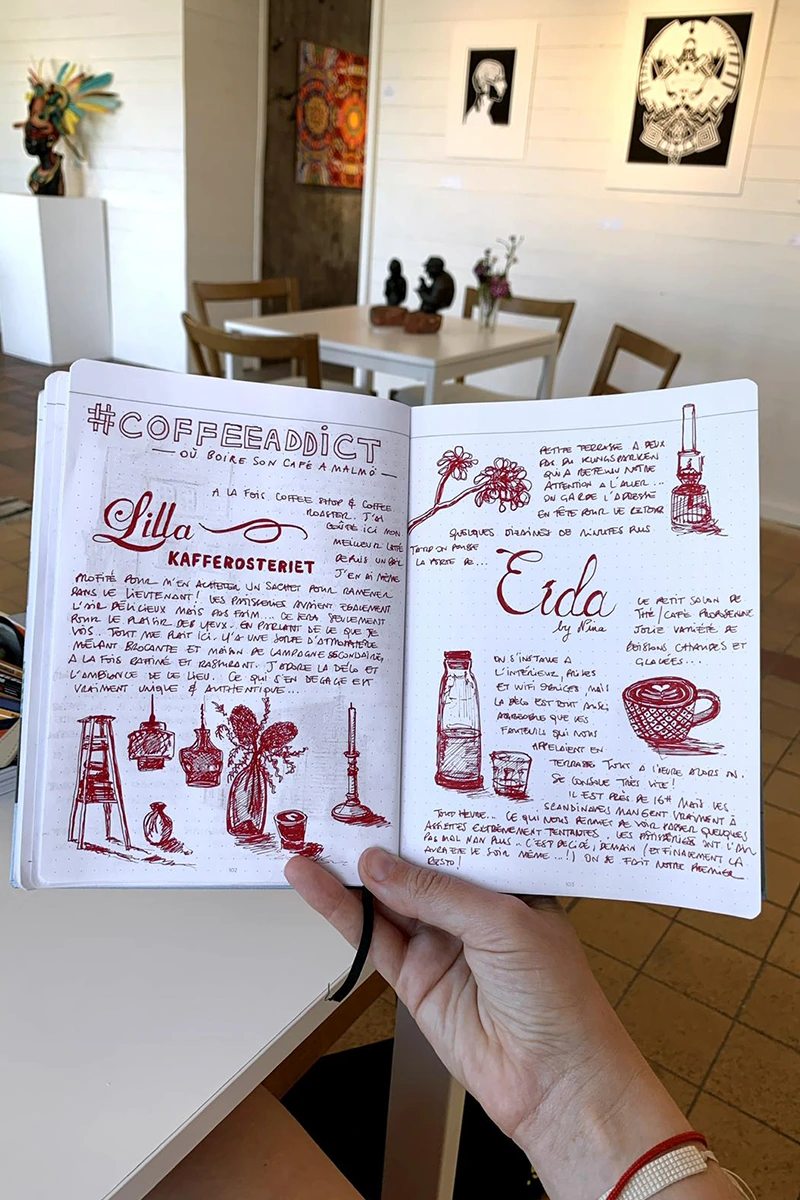 #COFFEEADDICT
— OÙ BOIRE SON CAFÉ À MALMÖ —
A LA FOIS COFFEE SHOP & COFFEE
ROASTER. J'AI
GOÛTÉ ICI MON
MEILLEUR LATTÉ
DEPUIS UN BAIL
J'EN AI MÊME
Lilla
KAFFEROSTERIET
PROFITÉ POUR M'EN ACHETER UN SACHET POUR RAMENER
DANS LE LIEUTENANT! LES PÂTISSERIES AVAIENT ÉGALEMENT
L'AIR DÉLICIEUX MAIS PAS FAIM... CE SERA SEULEMENT
POUR LE PLAISIR DES YEUX. EN PARLANT DE CE QUE JE
VOIS.. TOUT ME PLAIT ICI. Y'A UNE SORTE D'ATMOSPHÈRE
MÊLANT BROCANTE ET MAISON DE CAMPAGNE SECONDAIRE,
A LA FOIS RAFFINÉ ET RASSURANT. J'ADORE LA DÉCO ET
L'AMBIENCE DE CE LIEU. CE QUI S'EN DÉGAGE EST
VRAIMENT UNIQUE & AUTHENTIQUE...
102
PETITE TERRASSE A DEUX
PAS DU KUNGSPARKEN
QUI A RETENU NOTRE
ATTENTION A L'ALLER...
ON GARDE L'ADRESSE
EN TÊTE POUR LE RETOUR
QUELQUES DIZAINES DE MINUTES PLUS
TARD ON POUSSE
LA PORTE DE...
Eida
by Nina
LE PETIT SALON DE
THÉ/CAFÉ PROPOSE UNE
JOLIE VARIÉTÉ DE
BOISSONS CHAUDES ET
GLACÉES...
ON S'INSTALLE A
L'INTÉRIEUR, PRISES
ET WIFI OBLIGES MAIS
LA DÉCO EST TOUT AUSSI
AGRÉABLE QUE LES
FAUTEUILS QUI NOUS
APPELAIENT EN
TERRASSE TOUT A L'HEURE ALORS ON
SE CONSOLE TRÈS VITE!
IL EST PRÈS DE 16H MAIS LES
SCANDINAVES MANGENT VRAIMENT À
TOUT HEURE... CE QUI NOUS PERMET DE VOIR PASSER QUELQUES
ASSIETTES EXTRÊMEMENT TENTANTES. LES PÂTISSERIES ONT L'AIR
PAS MAL NON PLUS.. C'EST DÉCIDÉ, DEMAIN (ET FINALEMENT ÇA
AURA ÉTÉ LE SOIR MÊME...!) ON SE FAIT NOTRE PREMIER
RESTO!
103